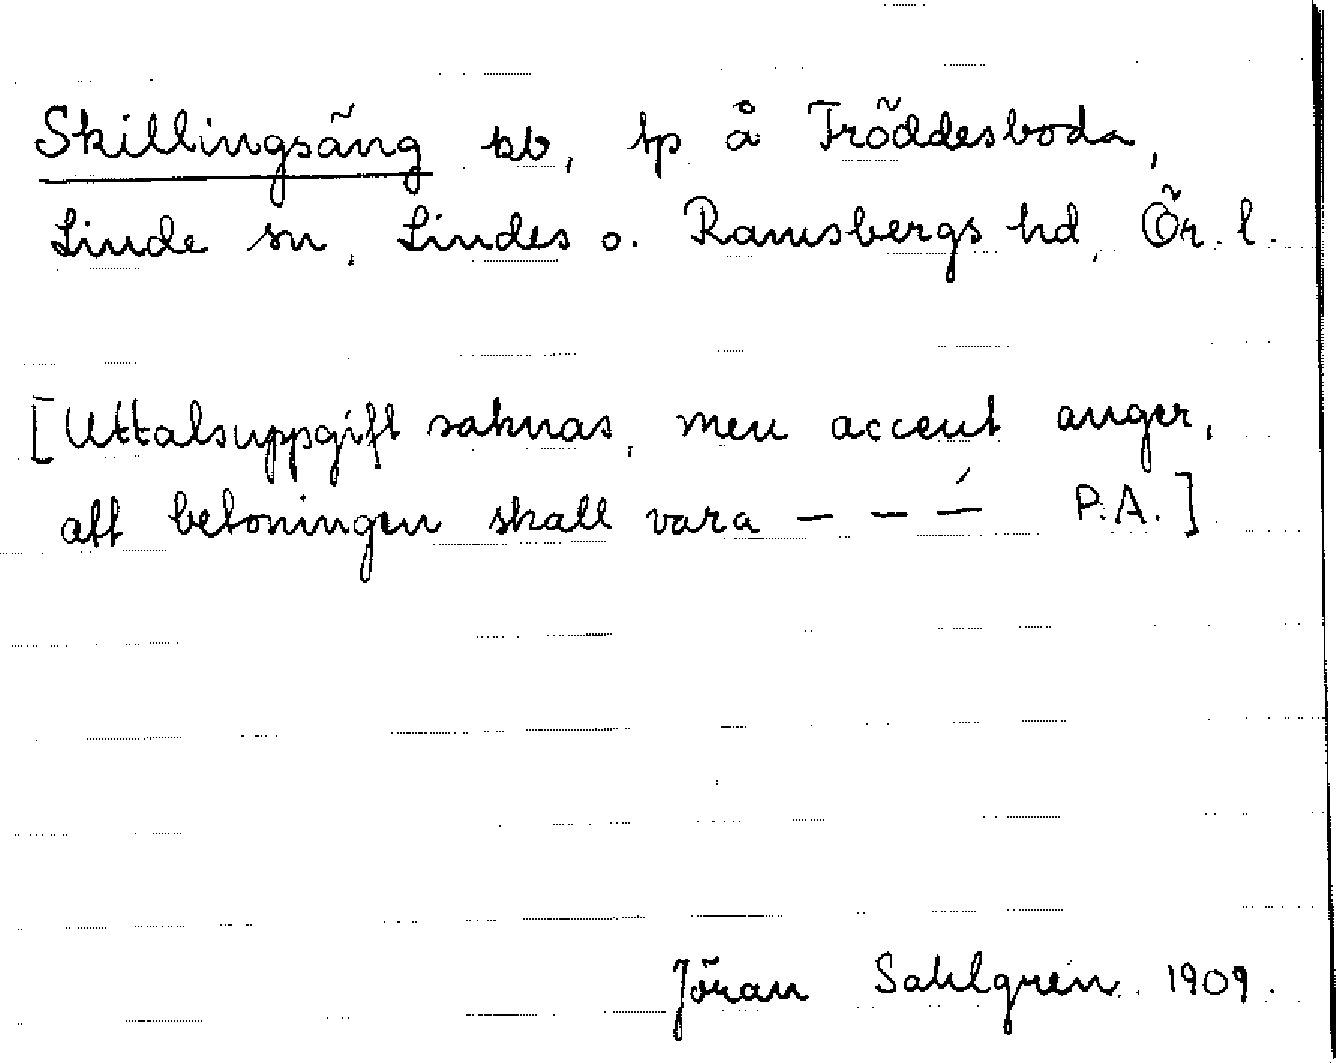 Skillingsäng kb, tp å Fröddesboda,
Linde sn, Lindes o. Ramsbergs hd, Ör. l.
[Uttalsuppgift saknas, men accent anger,
att betoningen skall vara – – –́ P.A.]
Jöran Sahlgren. 1909.